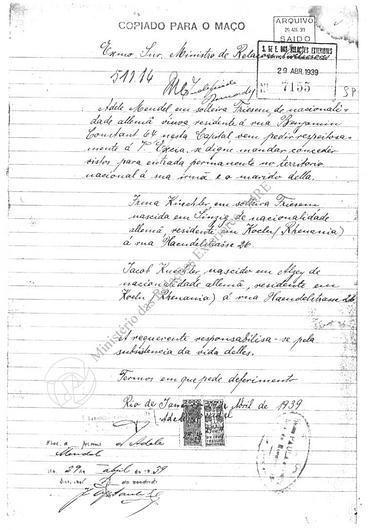 COPIADO PARA O MAÇO
ARQUIVO
SAIDO
S. DE E. DAS RELAÇÕES EXTERIORES
29 ABR. 1939
Nº 7155
Exmo. Snr. Ministro de Relações
511.14
Adele Mendel em solteira Triesem de nacionali-
dade allemã viuva residente á rua Benjamin
Constant 64 nesta Capital vem pedir respeitosa-
mente á V. Excia, se digne mandar conceder
vistos para entrada permanente no territorio
nacional á ma irmã e o marido della.
Irma Küchler, em solteira Triesem
nascida em Sinzig de nacionalidade
allemã, residente em Koeln (Rhenania)
á rua Haendelstrasse 26
Jacob Kuechler, nascido em Alzey de
nacionalidade allemã, residente em
Koeln (Rhenania) á rua Haendelstrasse 26
A requerente responsabilisa-se pela
subsistencia da vida delles.
Termos em que pede deferimento
Rio de Janeiro Abril de 1939
Adele
Mendel
29 abril 39
Ministério das Relações Exteriores